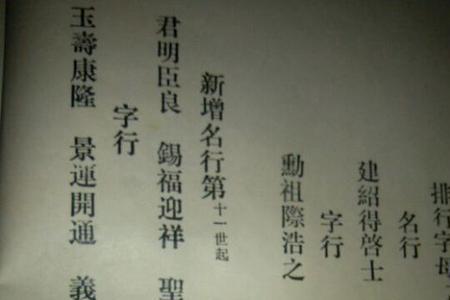 排行字母
名行
建紹得啓士
字行
勳祖際浩之
新增名行第十一世起
君明臣良 錫福迎祥 聖
字行
玉壽康隆 景運開通 義